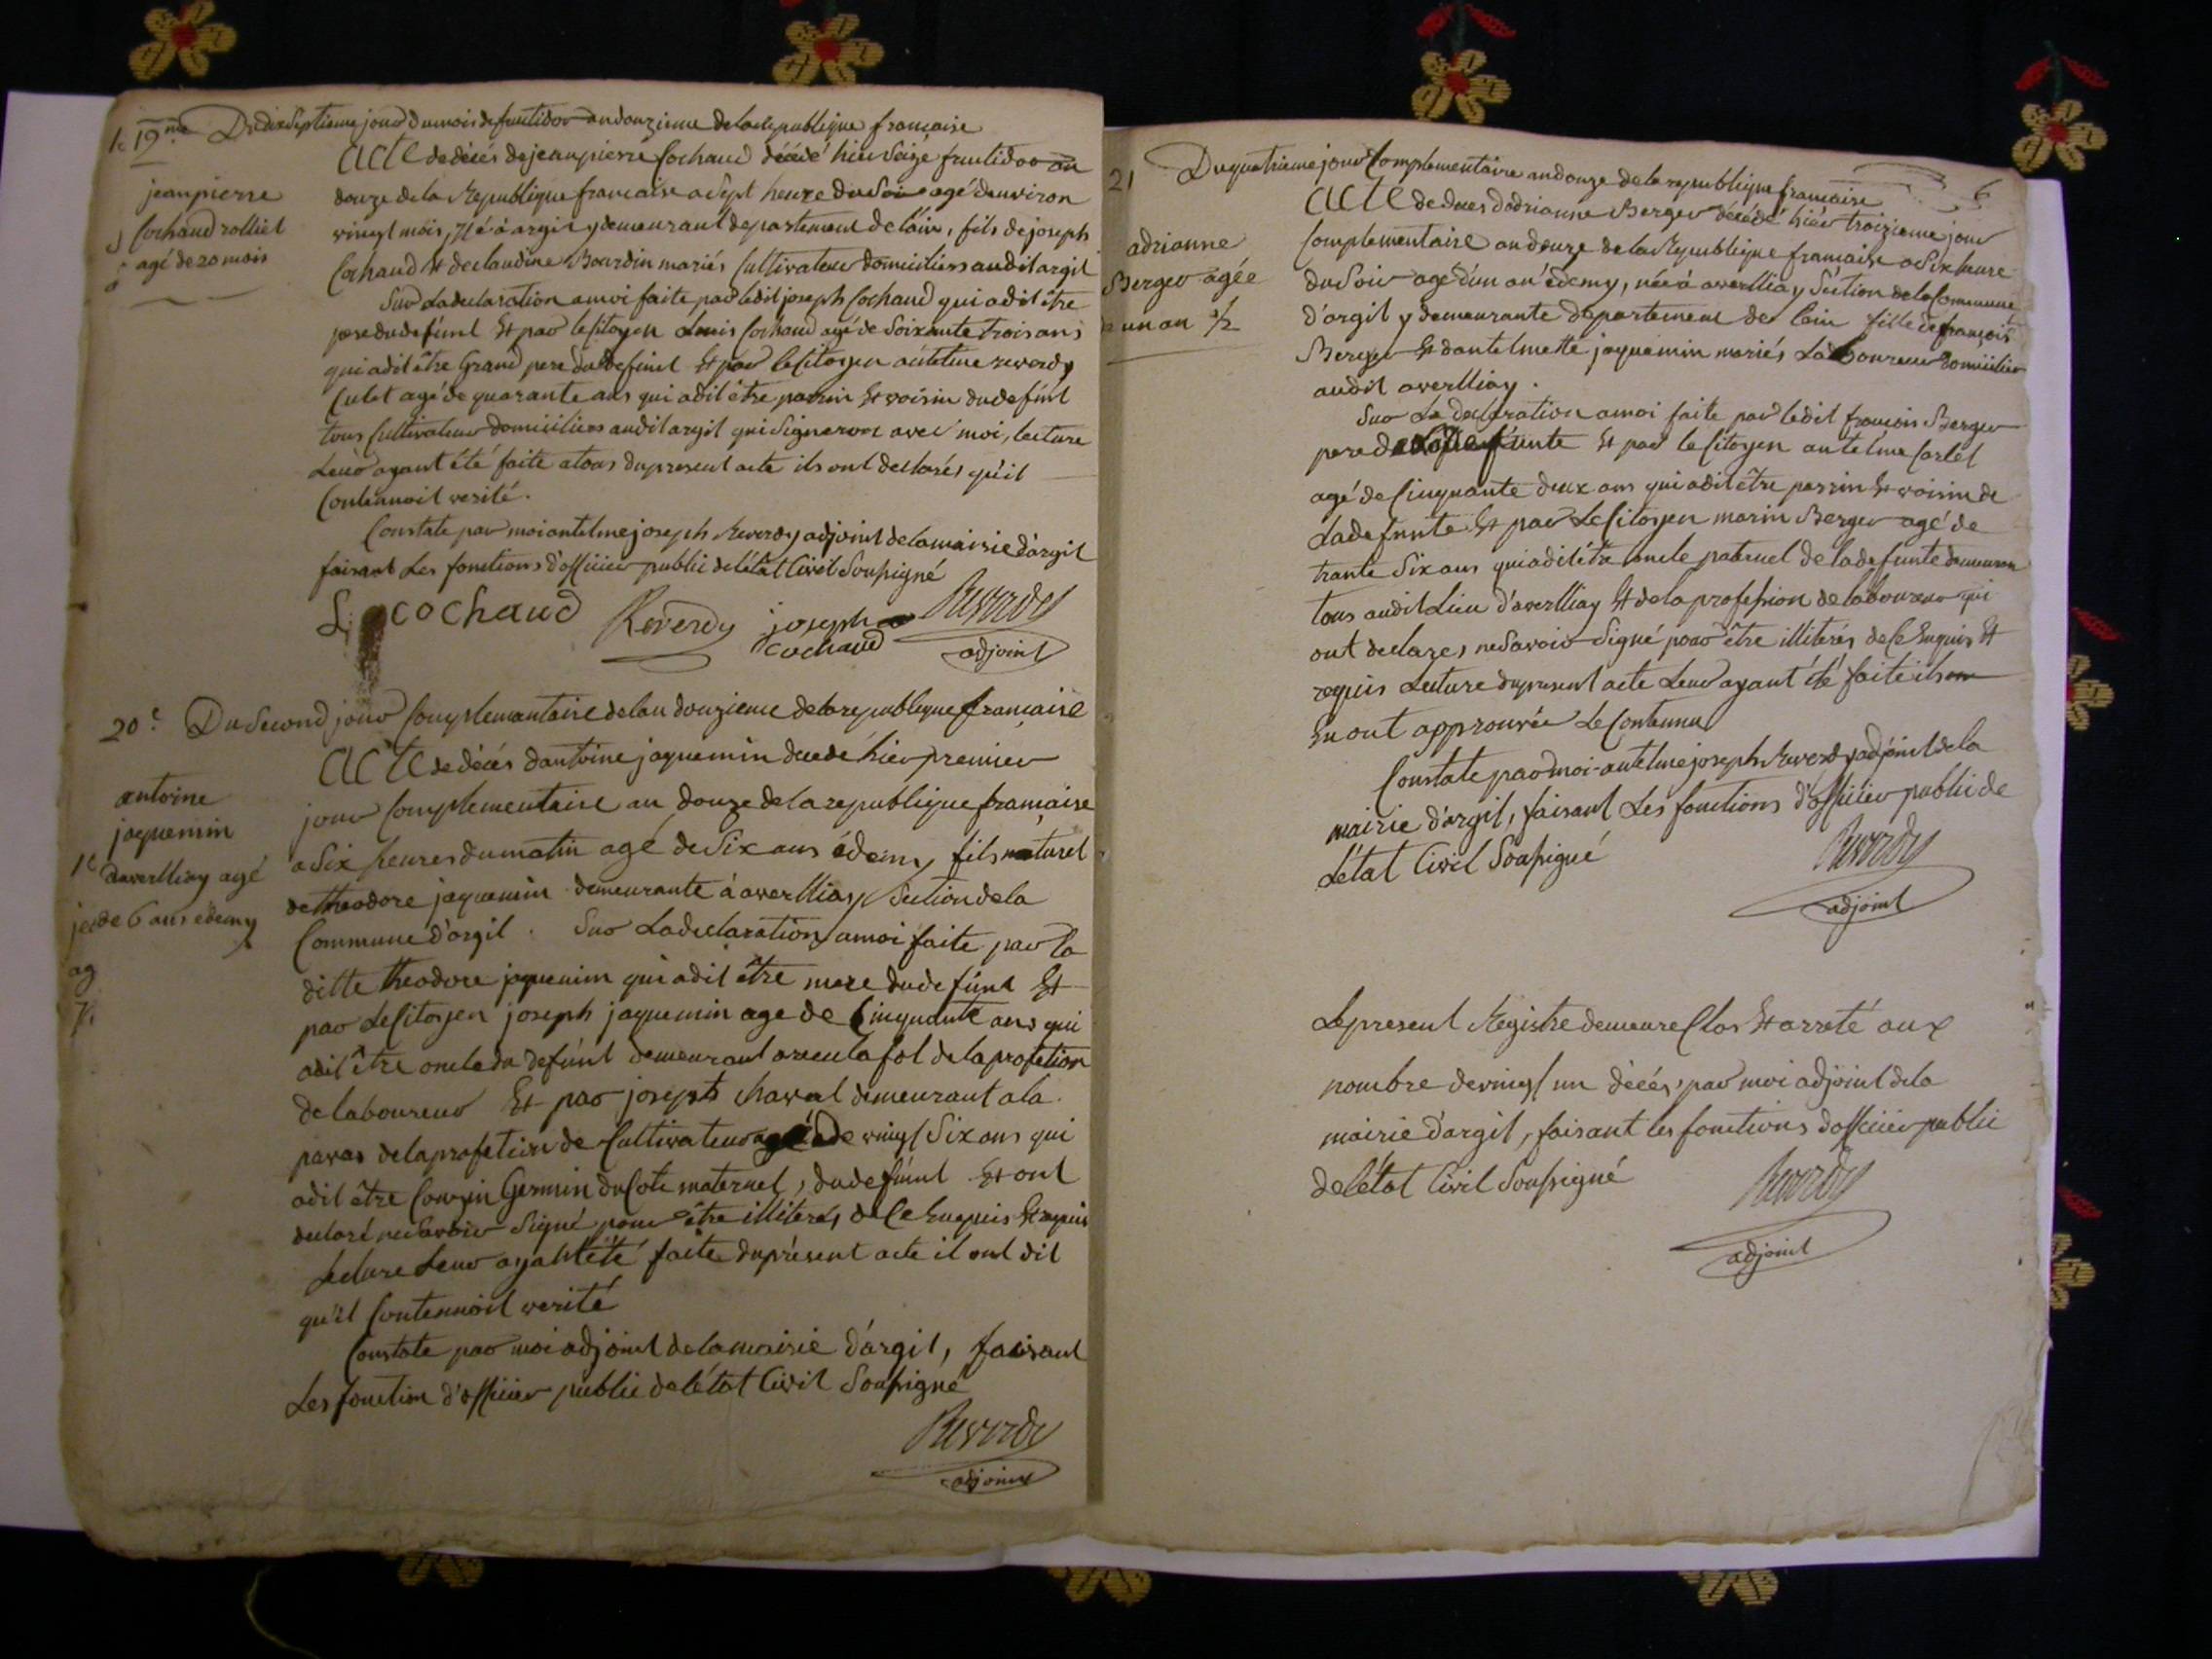 19.me Du dix septieme jour du mois de fructidor an douzieme de la republique francaise
jean pierre
Cochaud rolliet
agé de 20 mois
Acte de décés de jean pierre Cochaud décédé hier seize fructidor an
douze de la Republique francaise a sept heure du soir agé d'environ
vingt mois, Né à argit y demeurant departement de l'ain, fils de joseph
Cochaud Et de claudine Bourdin mariés Cultivateur domiciliers audit argit
Sur La declaration a moi faite par ledit joseph Cochaud qui a dit être
pere du defunt Et par le Citoyen Louis Cochaud agé de soixante trois ans
qui a dit être Grand pere du defunt Et par le Citoyen antelme reverdy
Culet agé de quarante ans qui a dit être parrin Et voisin du defunt
tous Cultivateur domiciliers audit argit qui signeron avec moi, lecture
Leur ayant été faite a tous du present acte ils ont declarés qu'il
Contennoit verité.
Constate par moi antelme joseph Reverdy adjoint de la mairie d'argit
faisant Les fonctions d'officier public de l'état Civil Soussigné
L cochaud Reverdy joseph cochaud Reverdy
adjoint
20.e Du second jour Complementaire de l'an douzieme de la republique francaise
antoine
jaquemin
d'averlliay agé
de 6 ans edemy
Acte de décés d'antoine jaquemin decedé hier premier
jour Complementaire an douze de la republique francaise
a six heures du matin agé de six ans édemy fils naturel
de theodore jaquemin demeurante à averlliay section de la
Commune d'argit. Sur La declaration a moi faite par la
ditte theodore jaquemin qui a dit être mere du defunt Et
par Le Citoyen joseph jaquemin age de Cinquante ans qui
a dit être oncle du defunt demeurant de la profetion
de laboureur Et par joseph demeurant a la
de la profetion de Cultivateur agé de vingt six ans qui
a dit être Cousin Germin du Coté maternel, du defunt Et ont
declaré ne savoir Signé pour être illiterés de Ce Enquis Et requis
Lecture Leur ayant été faite du présent acte il ont dit
qu'il Contennoit verité
Constate par moi adjoint de la mairie d'argit, faisant
Les fonction d'officier public de l'état Civil Soussigné
Reverdy
adjoint
6
21 Du quatrieme jour Complementaire an douze de la republique francaise
adrianne
Berger agée
un an 1/2
Acte de deces d'adrianne Berger décédé hier troizieme jour
Complementaire an douze de la Republique francaise a six heure
du Soir agé d'un an édemy, née à averlliay Séction de la Commune
d'argit y demeurante departement de lain fille de françois
Berger Et d'antelmette jaquemin mariés Laboureur domicilier
audit averlliay.
Sur La declaration a moi faite par ledit francois Berger
pere de La defunte Et par le Citoyen antelme
agé de Cinquante deux ans qui a dit être parrin Et voisin de
La defunte Et par Le Citoyen marin Berger agé de
trante Six ans qui a dit être oncle paternel de la defunte demeuran
tous audit Lieu d'averlliay Et de la profession de laboureur qui
ont declares ne savoir Signé pour être illiterés de Ce Enquis Et
requis Lecture du present acte Leur ayant été faite ils
En ont approuvée Le Contennu
Constate par moi antelme joseph Reverdy adjoint de la
mairie d'argit, faisant Les fonctions d'officier public de
L'état Civil Soussigné
Reverdy
adjoint
Le present Registre demeure Clos Et arreté aux
nombre de vingt un décés, par moi adjoint de la
mairie d'argit, faisant les fonctions d'officier public
de l'état Civil Soussigné
Reverdy
adjoint